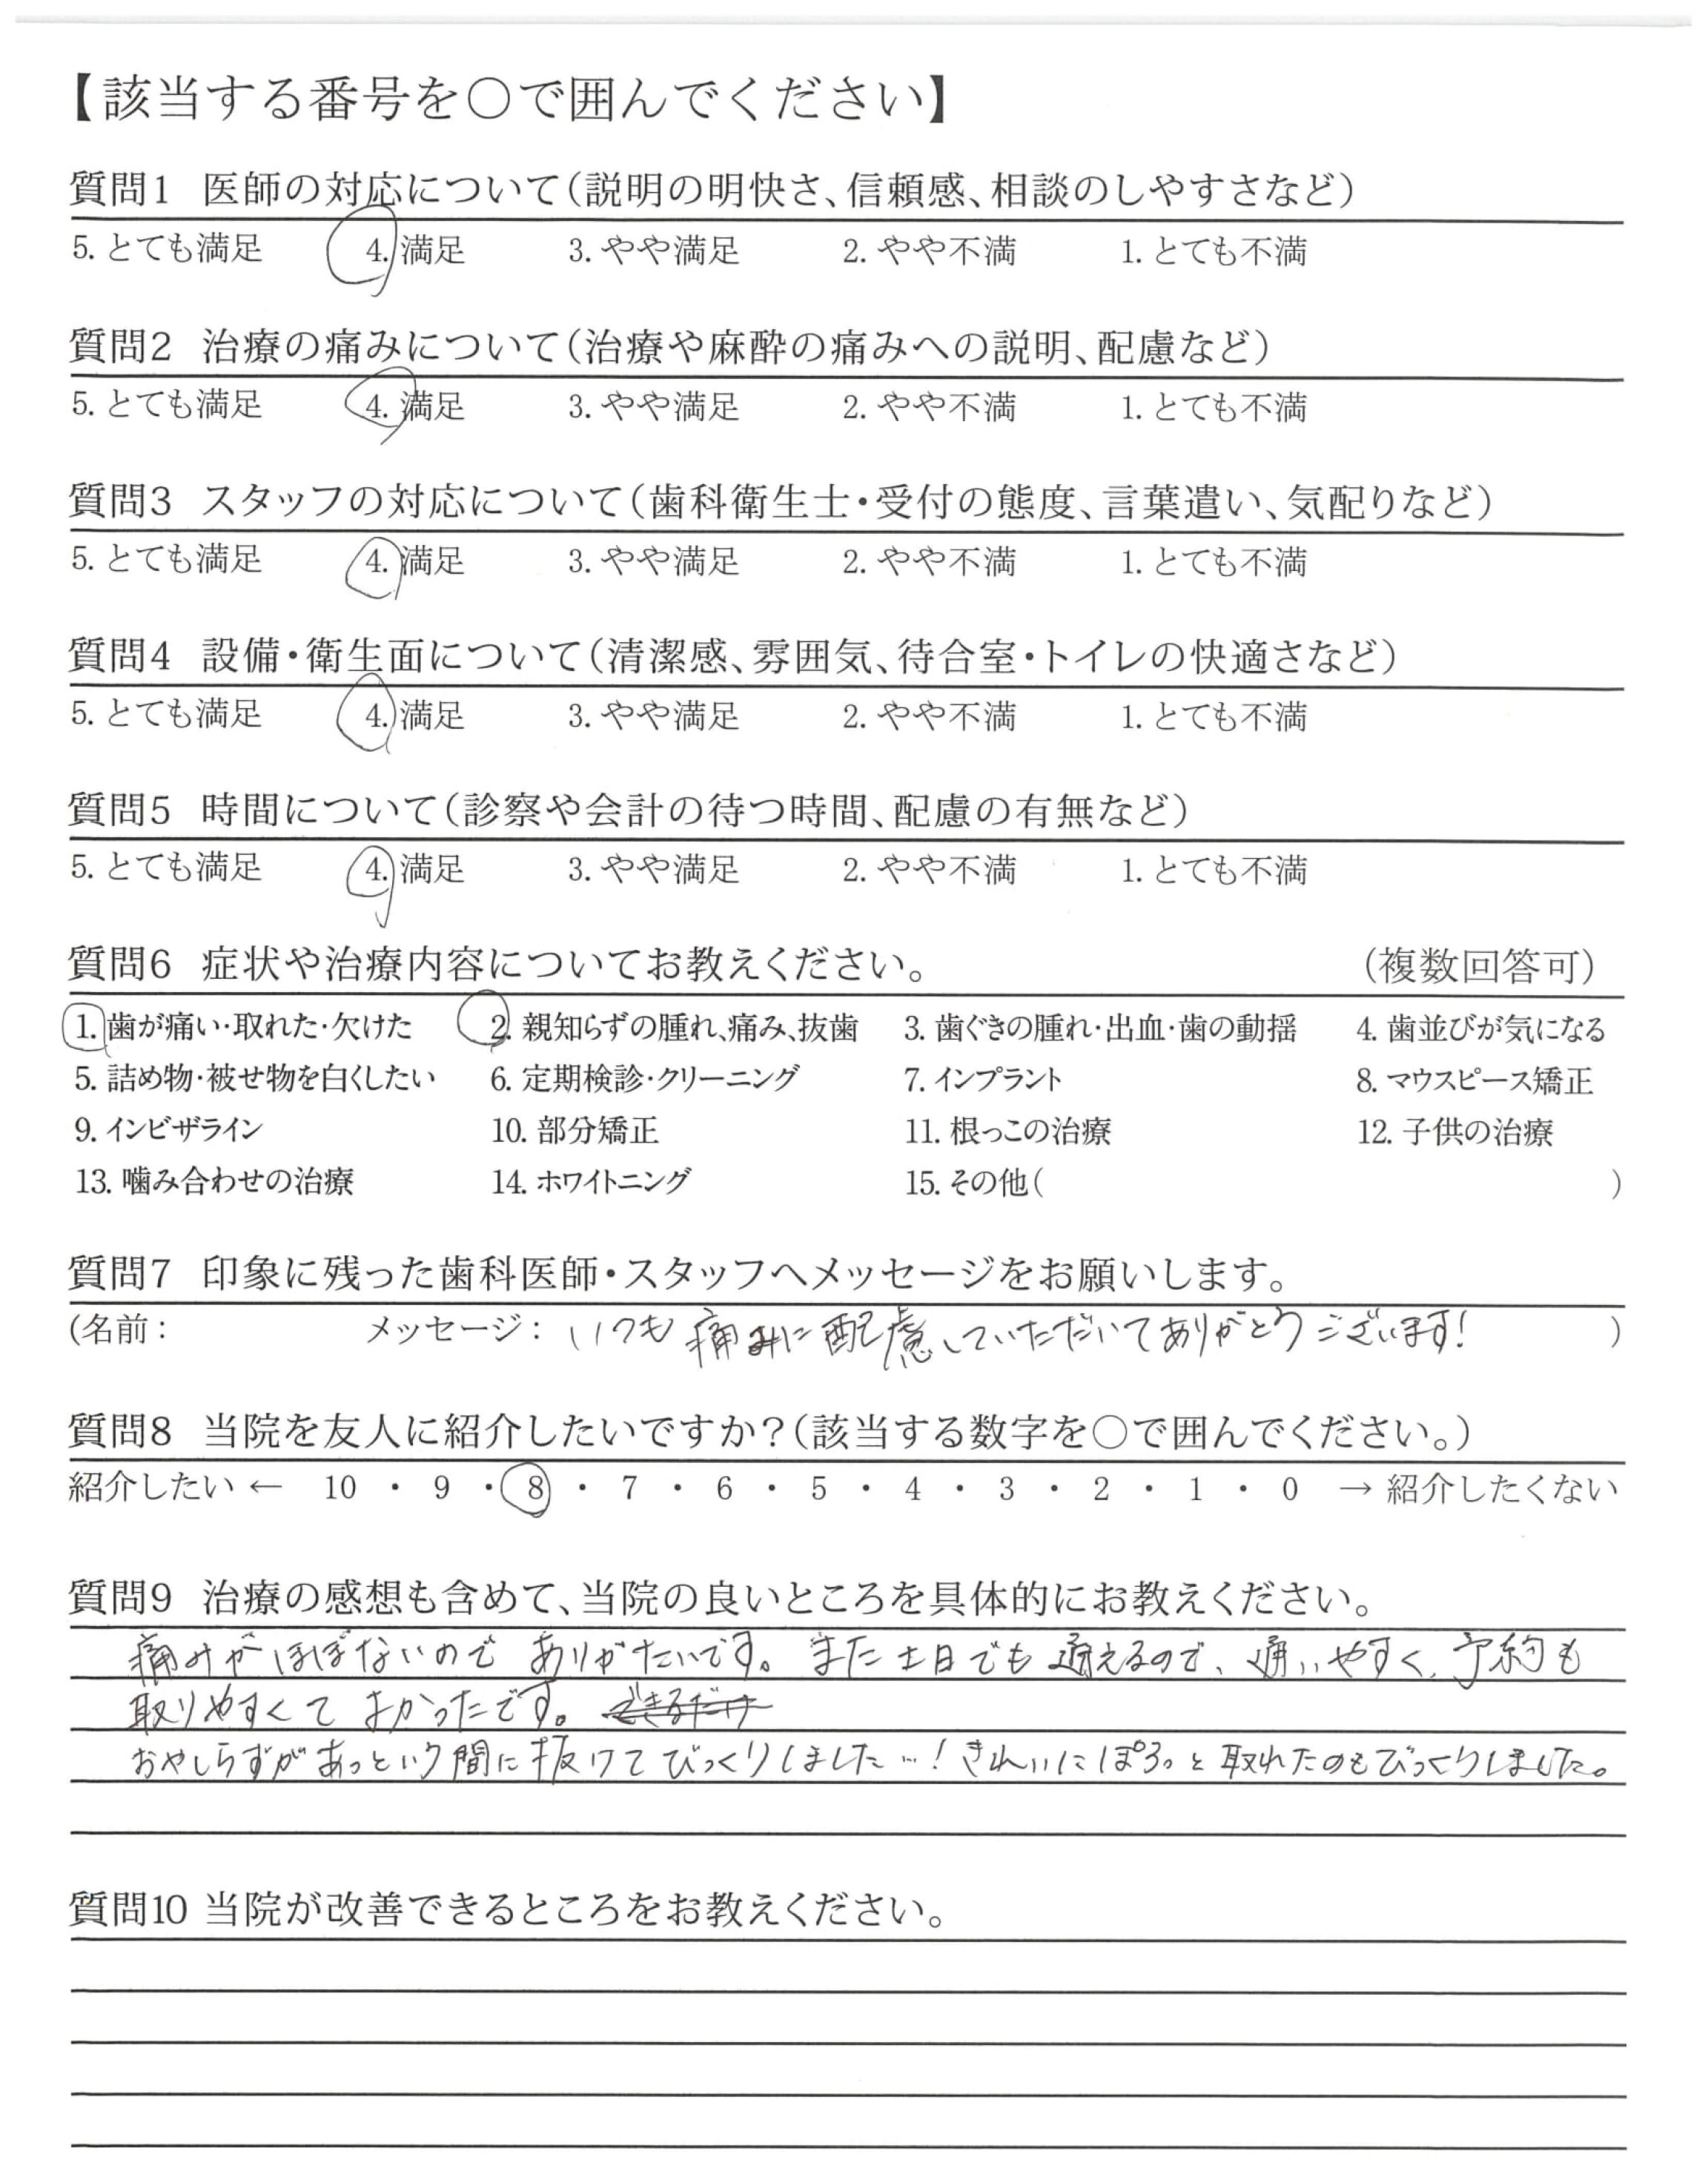 【該当する番号を○で囲んでください】
質問1 医師の対応について(説明の明快さ、信頼感、相談のしやすさなど)
5. とても満足 4. 満足 3. やや満足 2. やや不満 1. とても不満
質問2 治療の痛みについて(治療や麻酔の痛みへの説明、配慮など)
5. とても満足 4. 満足 3. やや満足 2. やや不満 1. とても不満
質問3 スタッフの対応について(歯科衛生士・受付の態度、言葉遣い、気配りなど)
5. とても満足 4. 満足 3. やや満足 2. やや不満 1. とても不満
質問4 設備・衛生面について(清潔感、雰囲気、待合室・トイレの快適さなど)
5. とても満足 4. 満足 3. やや満足 2. やや不満 1. とても不満
質問5 時間について(診察や会計の待つ時間、配慮の有無など)
5. とても満足 4. 満足 3. やや満足 2. やや不満 1. とても不満
質問6 症状や治療内容についてお教えください。 (複数回答可)
1. 歯が痛い・取れた・欠けた 2. 親知らずの腫れ、痛み、抜歯 3. 歯ぐきの腫れ・出血・歯の動揺 4. 歯並びが気になる
5. 詰め物・被せ物を白くしたい 6. 定期検診・クリーニング 7. インプラント 8. マウスピース矯正
9. インビザライン 10. 部分矯正 11. 根っこの治療 12. 子供の治療
13. 噛み合わせの治療 14. ホワイトニング 15. その他( )
質問7 印象に残った歯科医師・スタッフへメッセージをお願いします。
(名前: メッセージ: いつも痛みに配慮していただいてありがとうございます! )
質問8 当院を友人に紹介したいですか?(該当する数字を○で囲んでください。)
紹介したい ← 10 ・ 9 ・ 8 ・ 7 ・ 6 ・ 5 ・ 4 ・ 3 ・ 2 ・ 1 ・ 0 → 紹介したくない
質問9 治療の感想も含めて、当院の良いところを具体的にお教えください。
痛みがほぼないのでありがたいです。また土日でも通えるので、通いやすく、予約も
取りやすくてよかったです。できるだけ
おやしらずがあっという間に抜けてびっくりしました…!きれいにぽろっと取れたのもびっくりしました。
質問10 当院が改善できるところをお教えください。